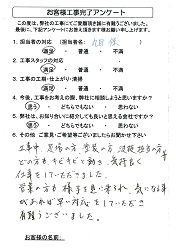 お客様工事完了アンケート
この度は、弊社の工事にてご愛顧頂き誠に有難うございました。
最後に、下記アンケートにお答え頂きます様お願い申し上げます。
1. 担当者の対応 (担当者名:
満足 ・ 普通 ・ 不満
2. 工事スタッフの対応
満足 ・ 普通 ・ 不満
3. 工事の工期・仕上がり・清掃
満足 ・ 普通 ・ 不満
4. 今後、工事をお考えの際、弊社に相談しようと思いますか?
思う ・ どちらでもない ・ 思わない
5. 弊社は、お知り合いに紹介しても良いと思える会社ですか?
思う ・ どちらでもない ・ 思わない
6. その他 ご意見・ご要望等ございましたらお聞かせ下さい
工事中、足場の方、塗装の方、
どの方も キビキビと動き、気持良く
仕事をしていただきました。
営業の方も 様子を見に来られ、気になる事
があれば 言い 対応していただき
有難うございました。
お客様のお名前